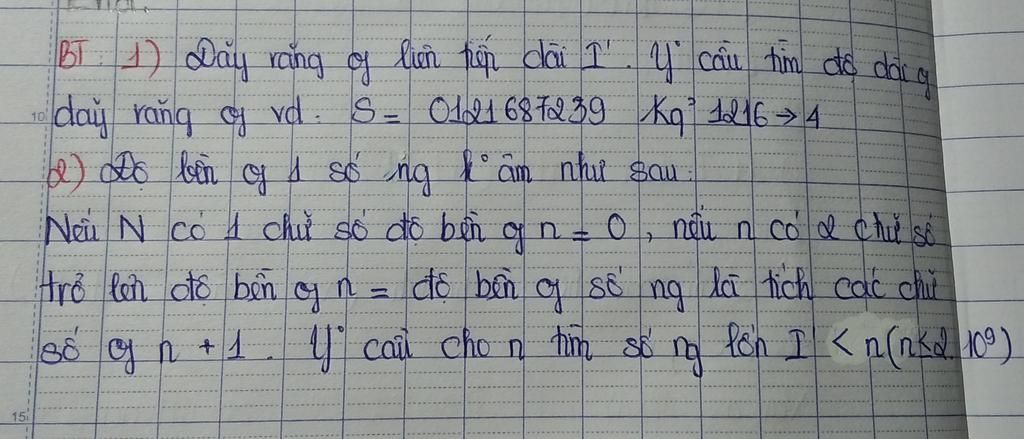 BT: 1) Dãy răng cg liên tiếp dài I'. y° cầu tìm độ dài g
dãy răng cg vd. S = 0121687239 Kq? 1216 → 4
2) Độ bền cg 1 số ng k° âm như sau:
Nếu N có 1 chữ số độ bền cg n = 0, nếu n có 2 chữ số
trở lên độ bền cg n = độ bền cg số ng là tích các chữ
số cg n + 1. y° cầu cho n tìm số ng lớn I' < n (n≤2.10⁹)